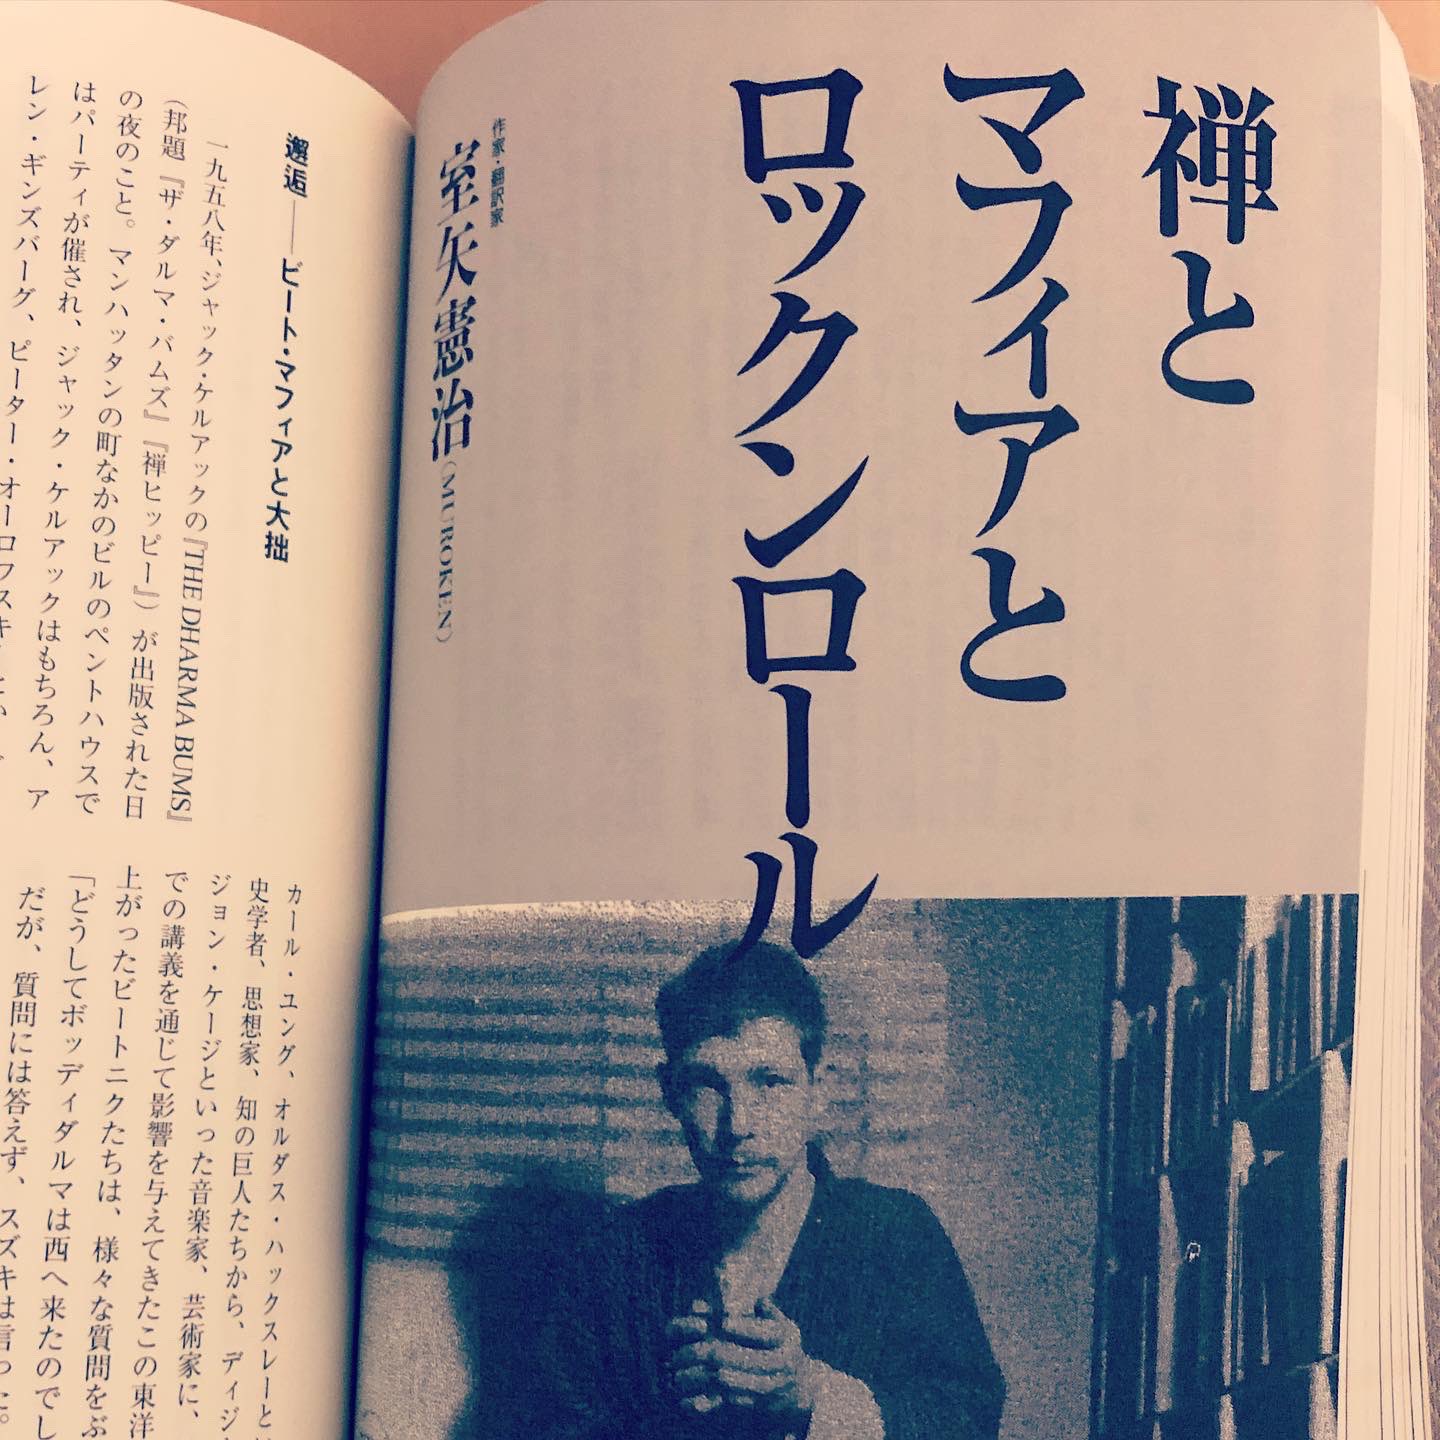 禅と
マフィアと
ロックンロール
作家・翻訳家
室矢憲治（MUROKEN）
邂逅――ビート・マフィアと大拙
一九五八年、ジャック・ケルアックの『THE DHARMA BUMS』
（邦題『ザ・ダルマ・バムズ』『禅ヒッピー』）が出版された日
の夜のこと。マンハッタンの町なかのビルのペントハウスで
はパーティが催され、ジャック・ケルアックはもちろん、ア
レン・ギンズバーグ、ピーター・オーロフスキー
カール・ユング、オルダス・ハックスレーと
史学者、思想家、知の巨人たちから、ディジ
ジョン・ケージといった音楽家、芸術家に、
での講義を通じて影響を与えてきたこの東洋
上がったビートニクたちは、様々な質問をぶ
「どうしてボッディダルマは西へ来たのでし
だが、質問には答えず、スズキは言った。